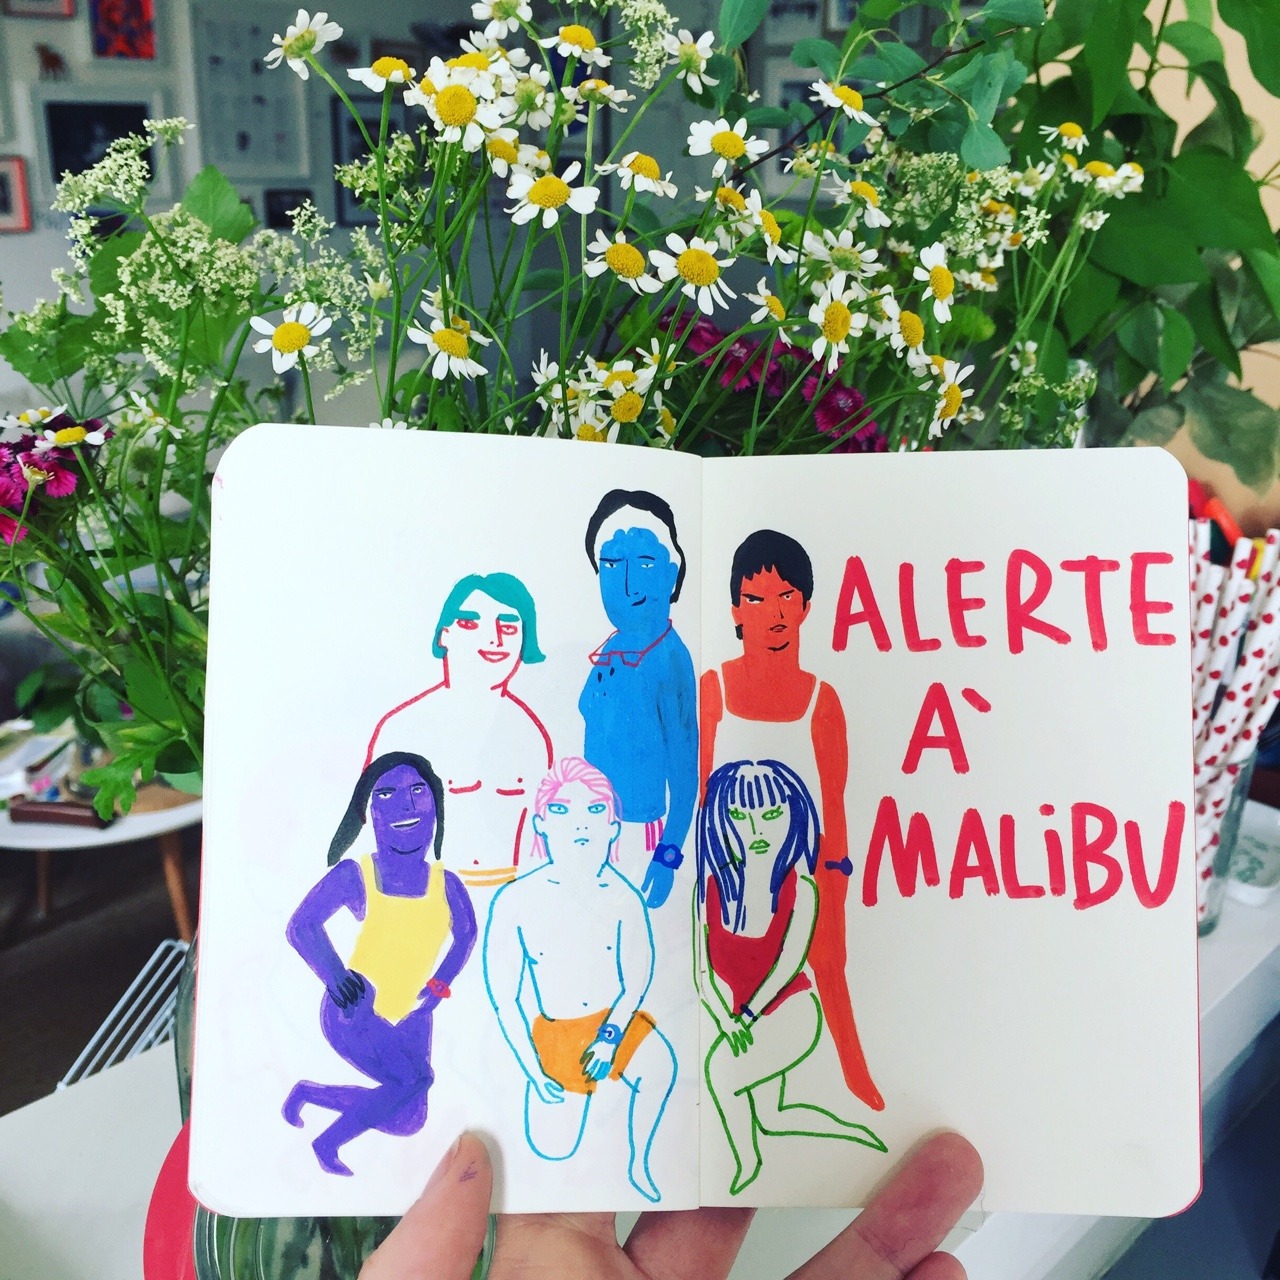 ALERTE
À
MALiBU